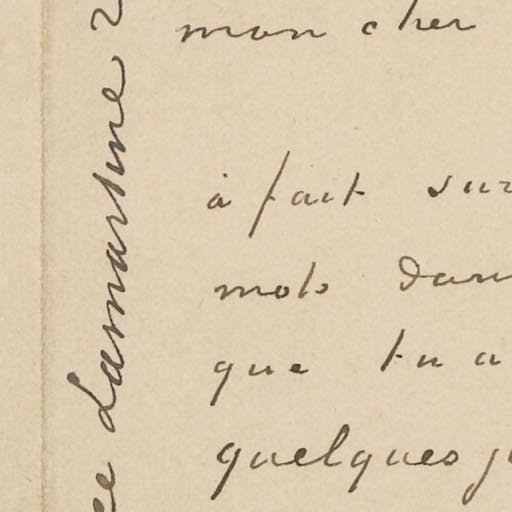 mon cher
à fait sur
mots dans
que tu a
quelques
Lamartine 2